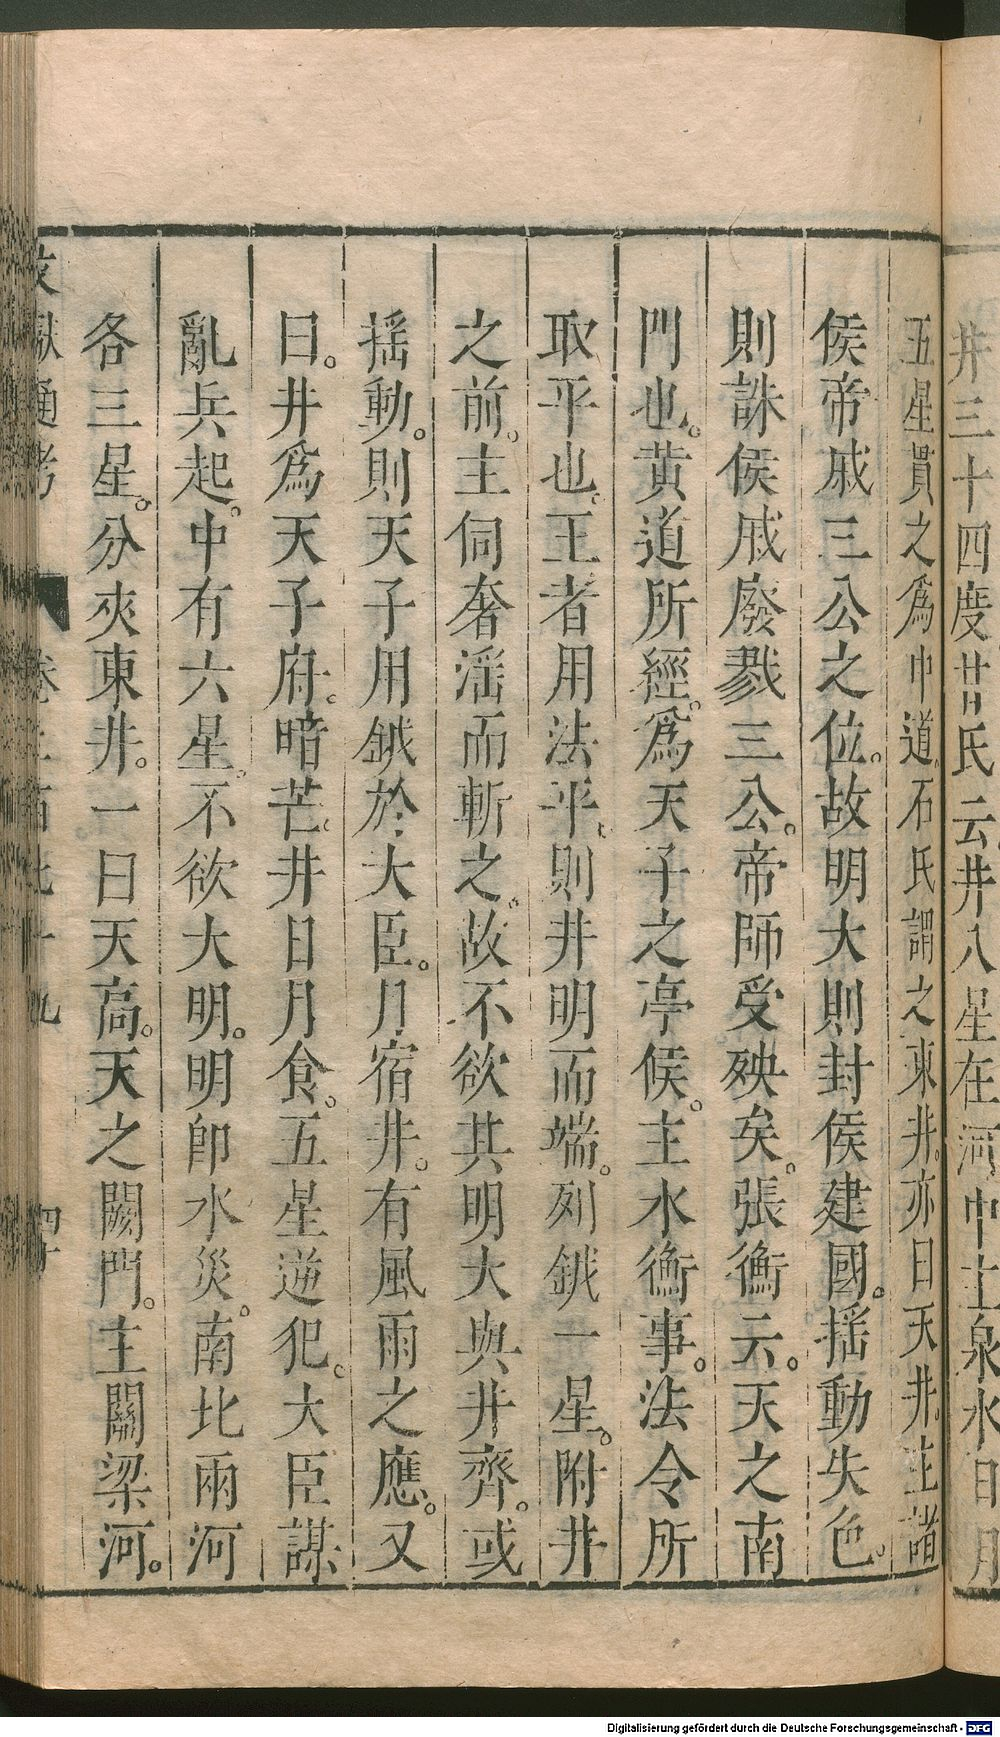 井三十四度甘氏云井八星在河中主泉水日月
五星貫之爲中道。石氏謂之東井。亦曰天井。主諸
侯帝戚三公之位。故明大則封侯建國。揺動失色。
則誅侯戚廢戮三公。帝師受殃矣。張衡云。天之南
門也。黄道所經。爲天子之亭候。主水衡事。法令所
取平也。王者用法平。則井明而端。列鉞一星。附井
之前。主伺奢淫而斬之。故不欲其明大與井齊。或
揺動。則天子用鉞於大臣。月宿井。有風雨之應。又
曰。井爲天子府。暗芒。井日月食。五星逆犯。大臣謀
亂兵起。中有六星。不欲大明。明卽水災。南北兩河
各三星。分夾東井。一曰天高。天之闕門。主關梁河。
文獻通考 卷二百七十九 四十
Digitalisierung gefördert durch die Deutsche Forschungsgemeinschaft - DFG